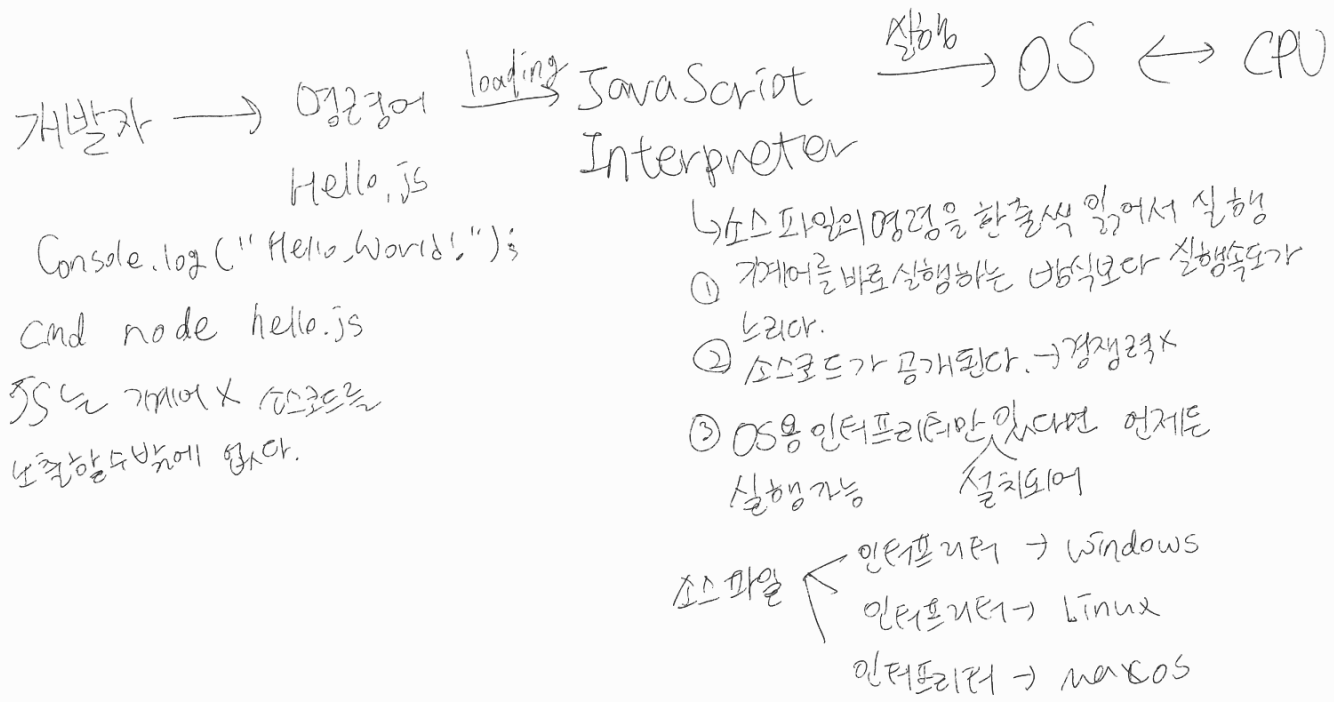 개발자 → 명령어 loading → JavaScript Interpreter 실행 → OS ↔ CPU
Hello.js
Console.log("Hello, World!");
cmd node hello.js
JS는 기계어 X 소스코드를
노출할 수밖에 없다.
↳ 소스파일의 명령을 한줄씩 읽어서 실행
① 기계어를 바로 실행하는 방식보다 실행속도가
느리다.
② 소스코드가 공개된다. → 경쟁력 X
③ OS용 인터프리터만 있다면 언제든
설치되어
실행가능
소스파일
인터프리터 → Windows
인터프리터 → Linux
인터프리터 → macOS